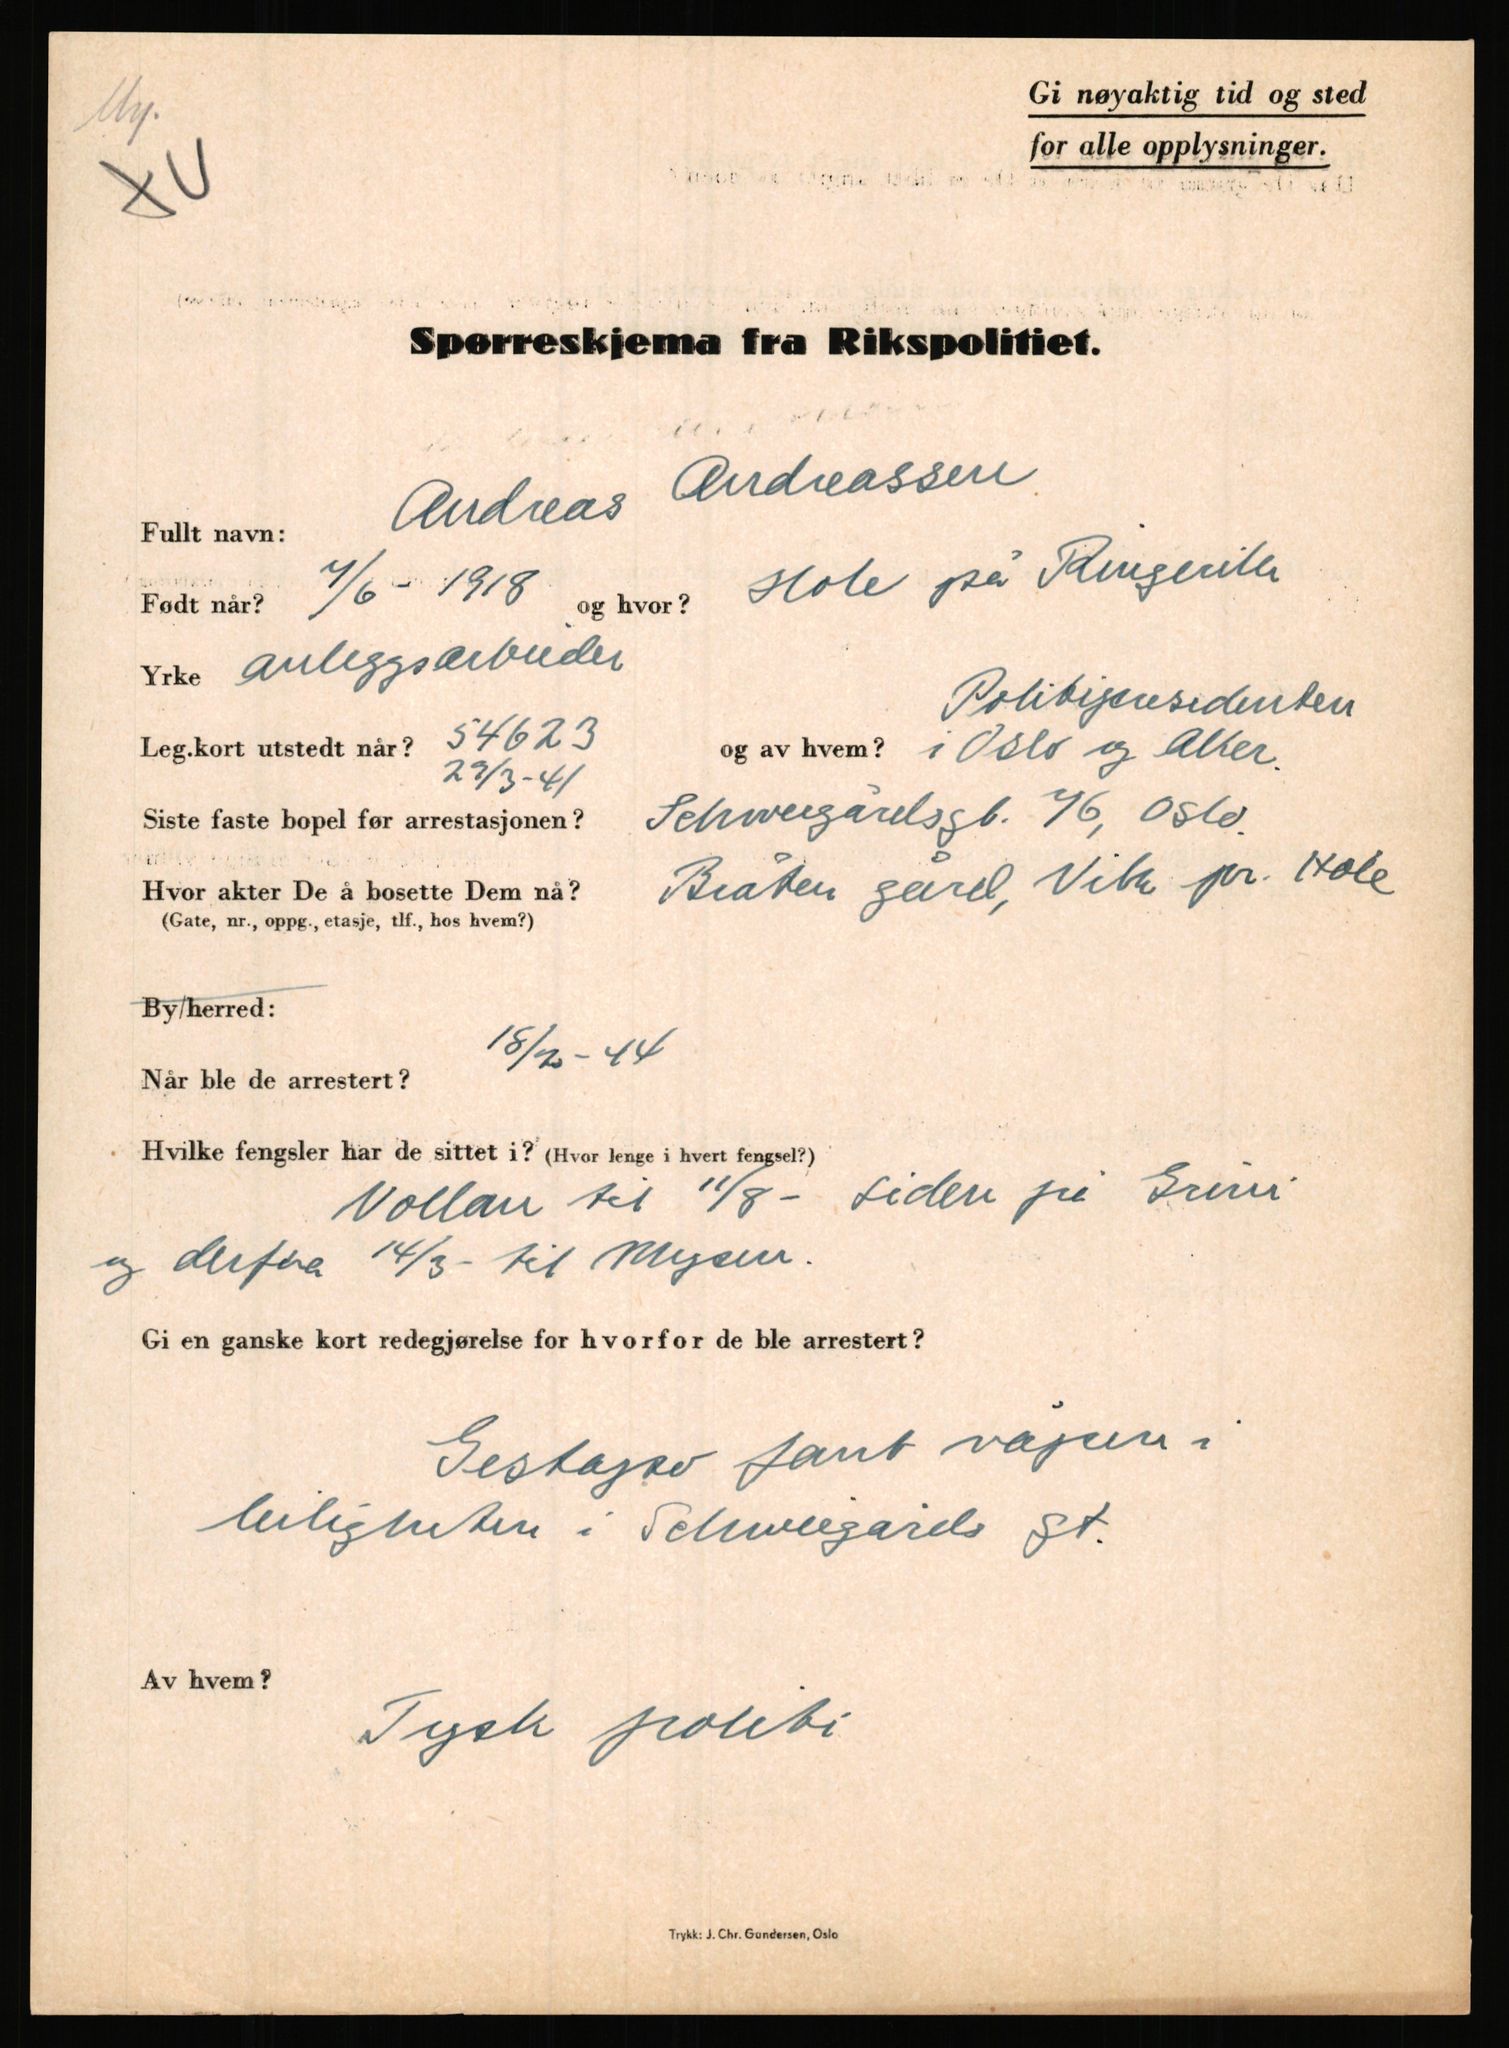 My.
XU
Gi nøyaktig tid og sted
for alle opplysninger.
Spørreskjema fra Rikspolitiet.
Fullt navn: Andreas Andreassen
Født når? 7/6 - 1918 og hvor? Hole på Ringerik
Yrke anleggsarbeider
Leg.kort utstedt når? 54623 og av hvem? Politipresidenten
29/3-41 i Oslo og Aker.
Siste faste bopel før arrestasjonen? Schweigårdsgt. 76, Oslo.
Hvor akter De å bosette Dem nå? Bråten gård, Vik pr. Hole
(Gate, nr., oppg., etasje, tlf., hos hvem?)
By/herred:
Når ble de arrestert? 18/2 - 44
Hvilke fengsler har de sittet i? (Hvor lenge i hvert fengsel?)
Vollan til 11/8 - siden på Grini
og derfra 14/3 - til Mysen.
Gi en ganske kort redegjørelse for hvorfor de ble arrestert?
Gestapo fant våpen i
leiligheten i Schweigårds gt.
Av hvem?
Tysk politi
Trykk: J. Chr. Gundersen, Oslo